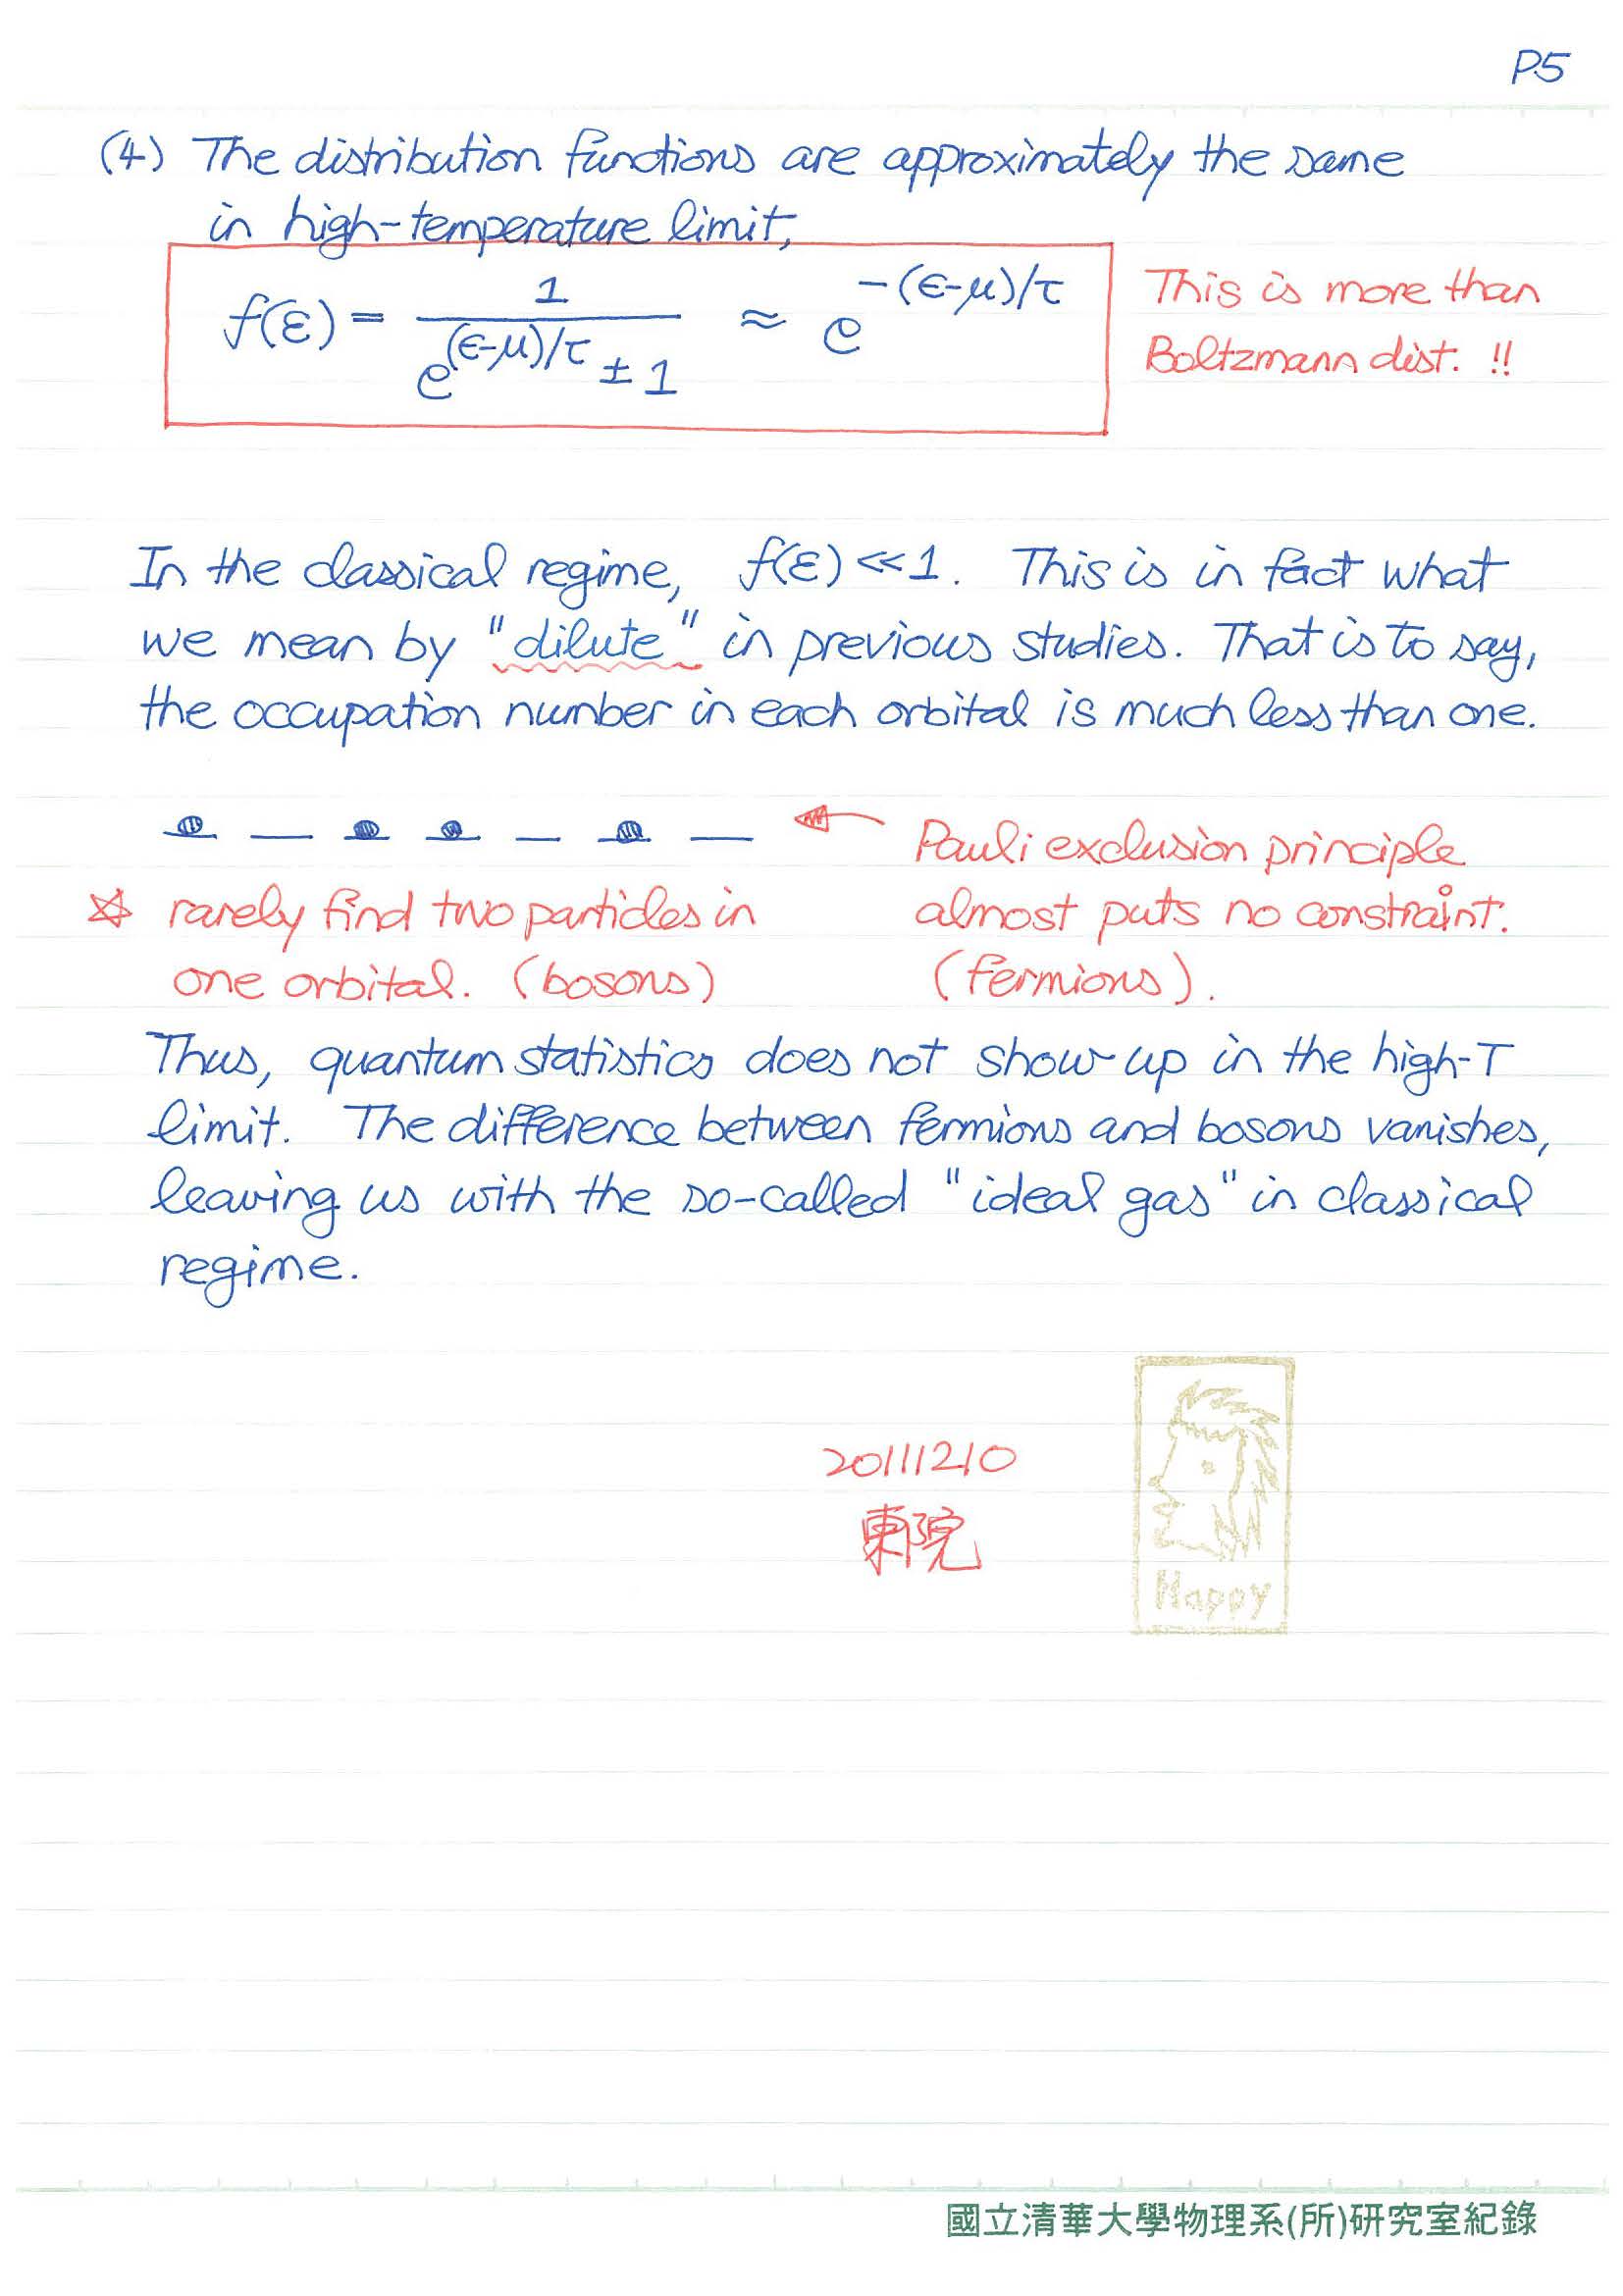 P5
(4) The distribution functions are approximately the same
in high-temperature limit,
f(ε) = 1 / (e^{(ϵ-μ)/τ} ± 1) ≈ e^{-(ϵ-μ)/τ}
This is more than
Boltzmann dist. !!
In the classical regime, f(ε) ≪ 1. This is in fact what
we mean by "dilute" in previous studies. That is to say,
the occupation number in each orbital is much less than one.
☆ rarely find two particles in
one orbital. (bosons)
Pauli exclusion principle
almost puts no constraint.
(fermions).
Thus, quantum statistics does not show up in the high-T
limit. The difference between fermions and bosons vanishes,
leaving us with the so-called "ideal gas" in classical
regime.
20111210
東院
Happy
國立清華大學物理系(所)研究室紀錄